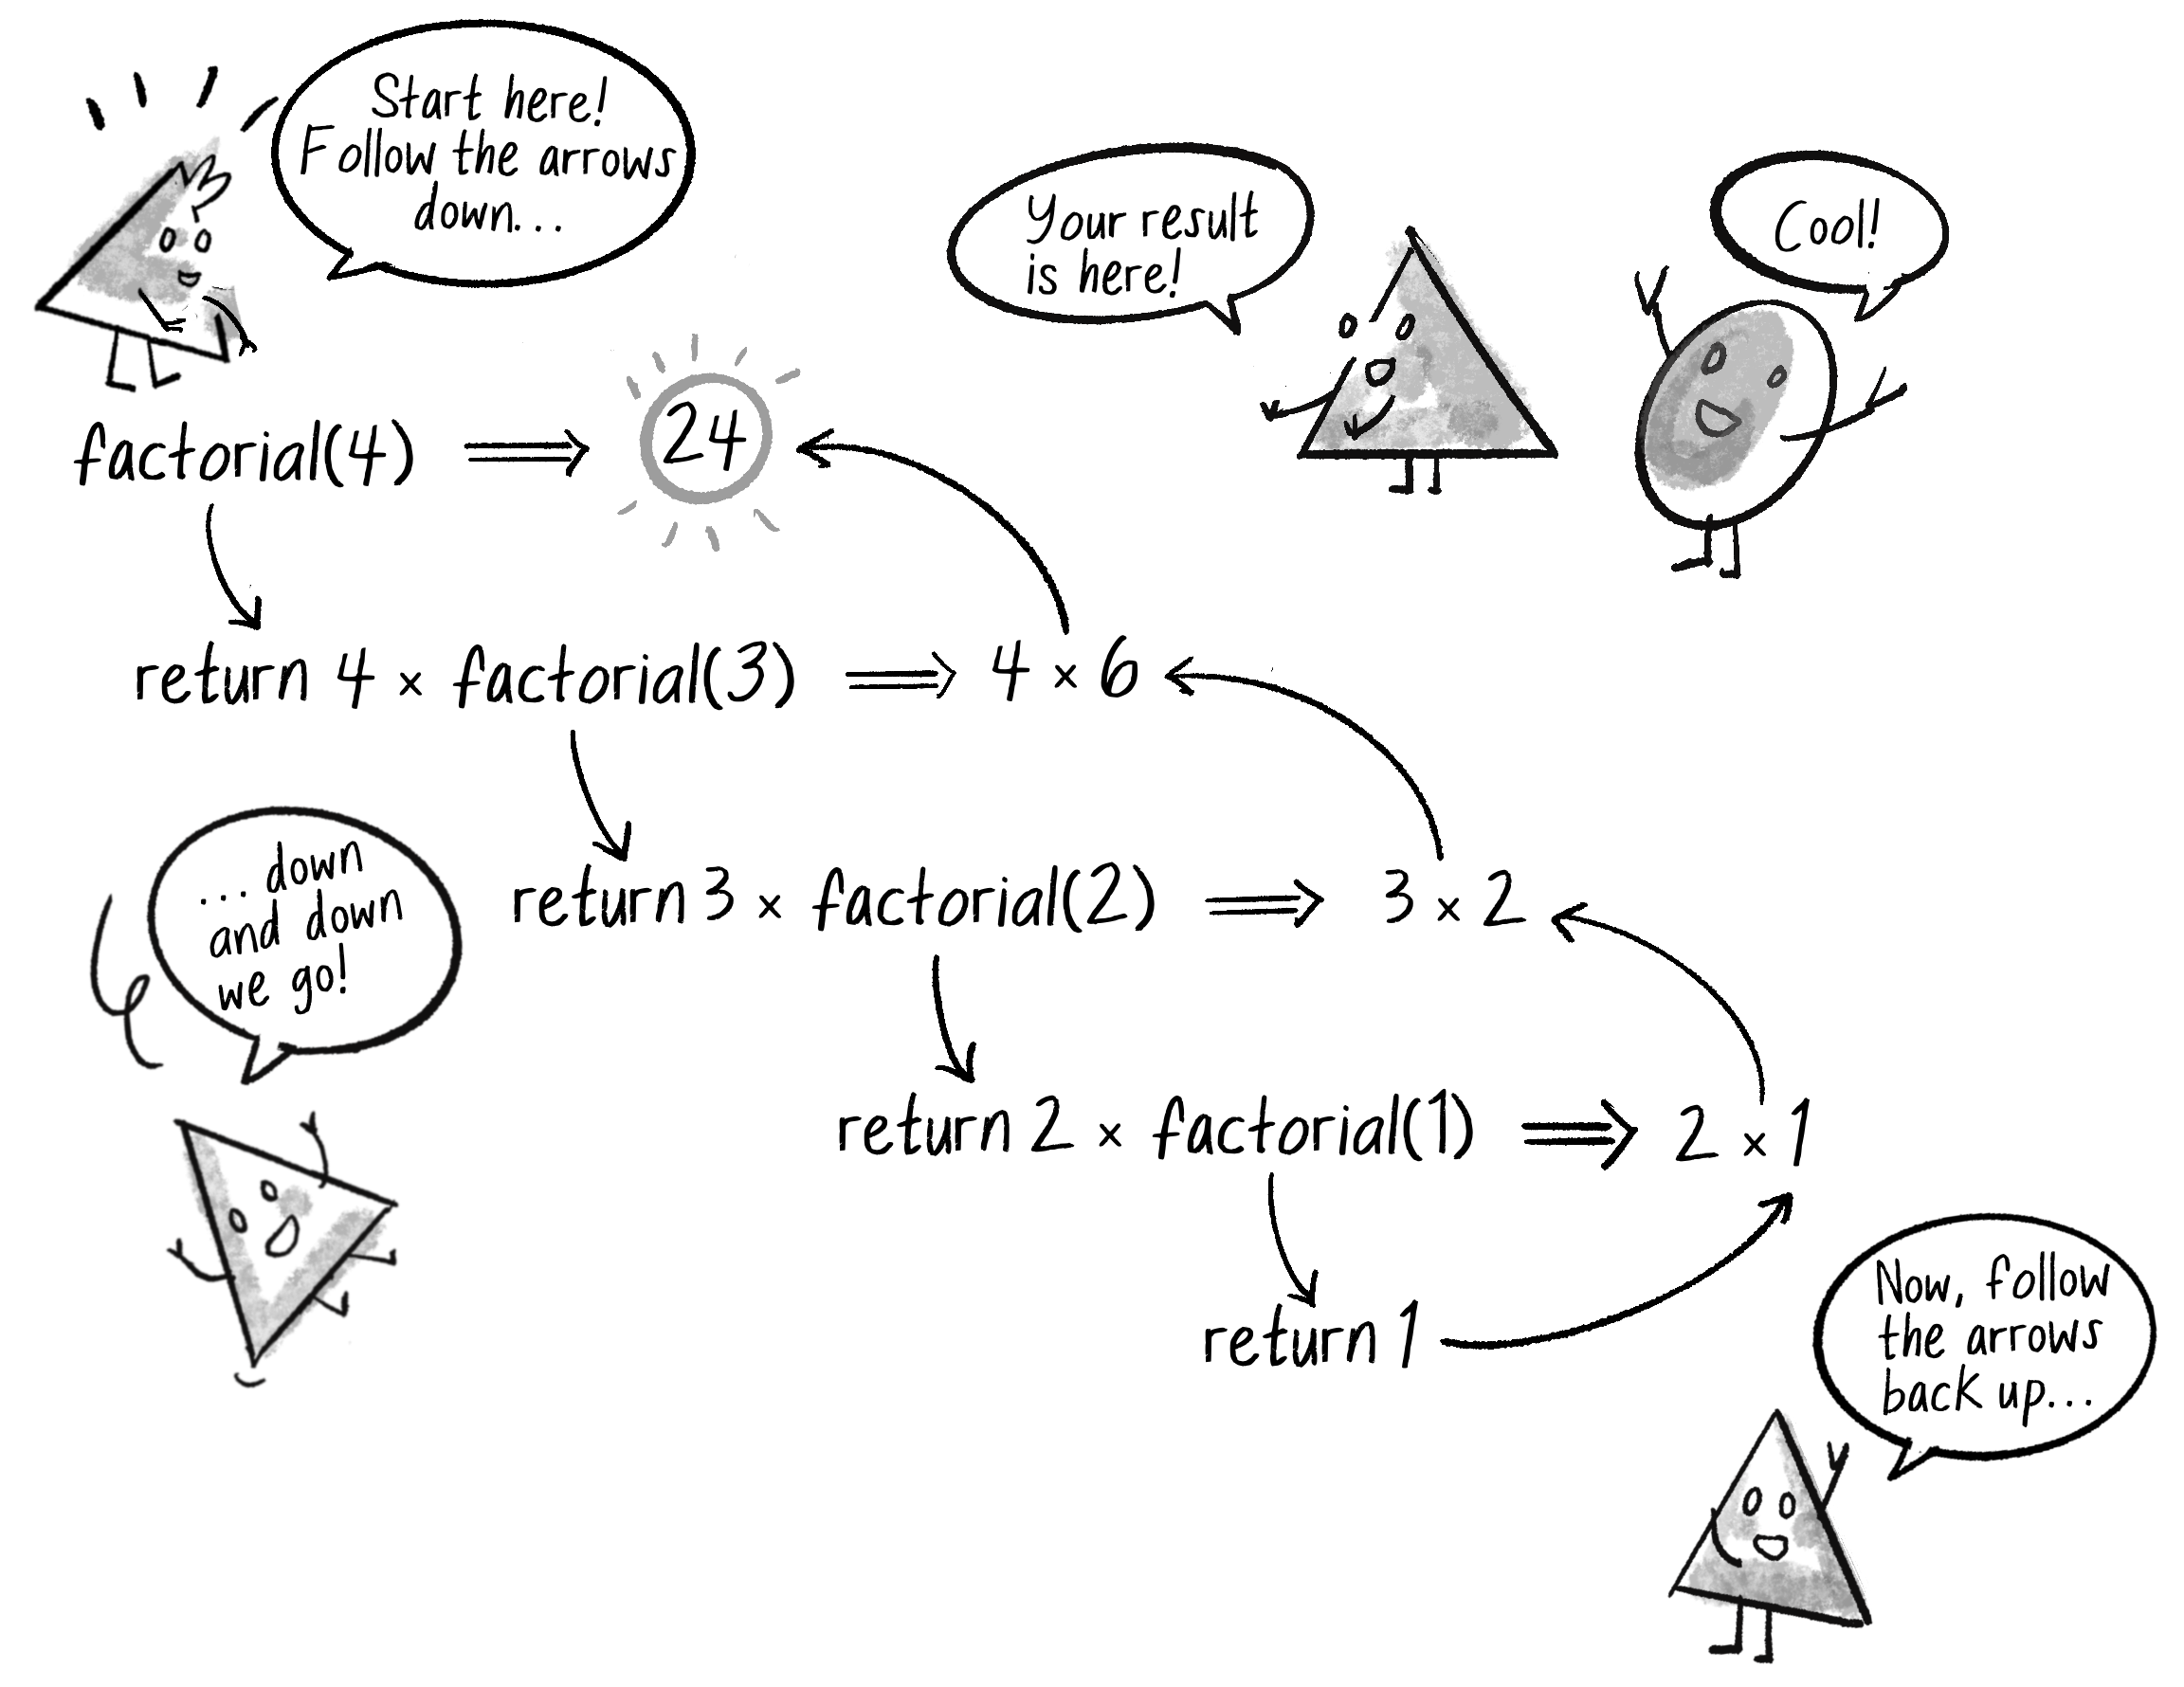 Start here!
Follow the arrows
down...
Your result
is here!
Cool!
factorial(4) ⟹ 24
return 4 × factorial(3) ⟹ 4 × 6
... down
and down
we go!
return 3 × factorial(2) ⟹ 3 × 2
return 2 × factorial(1) ⟹ 2 × 1
return 1
Now, follow
the arrows
back up...